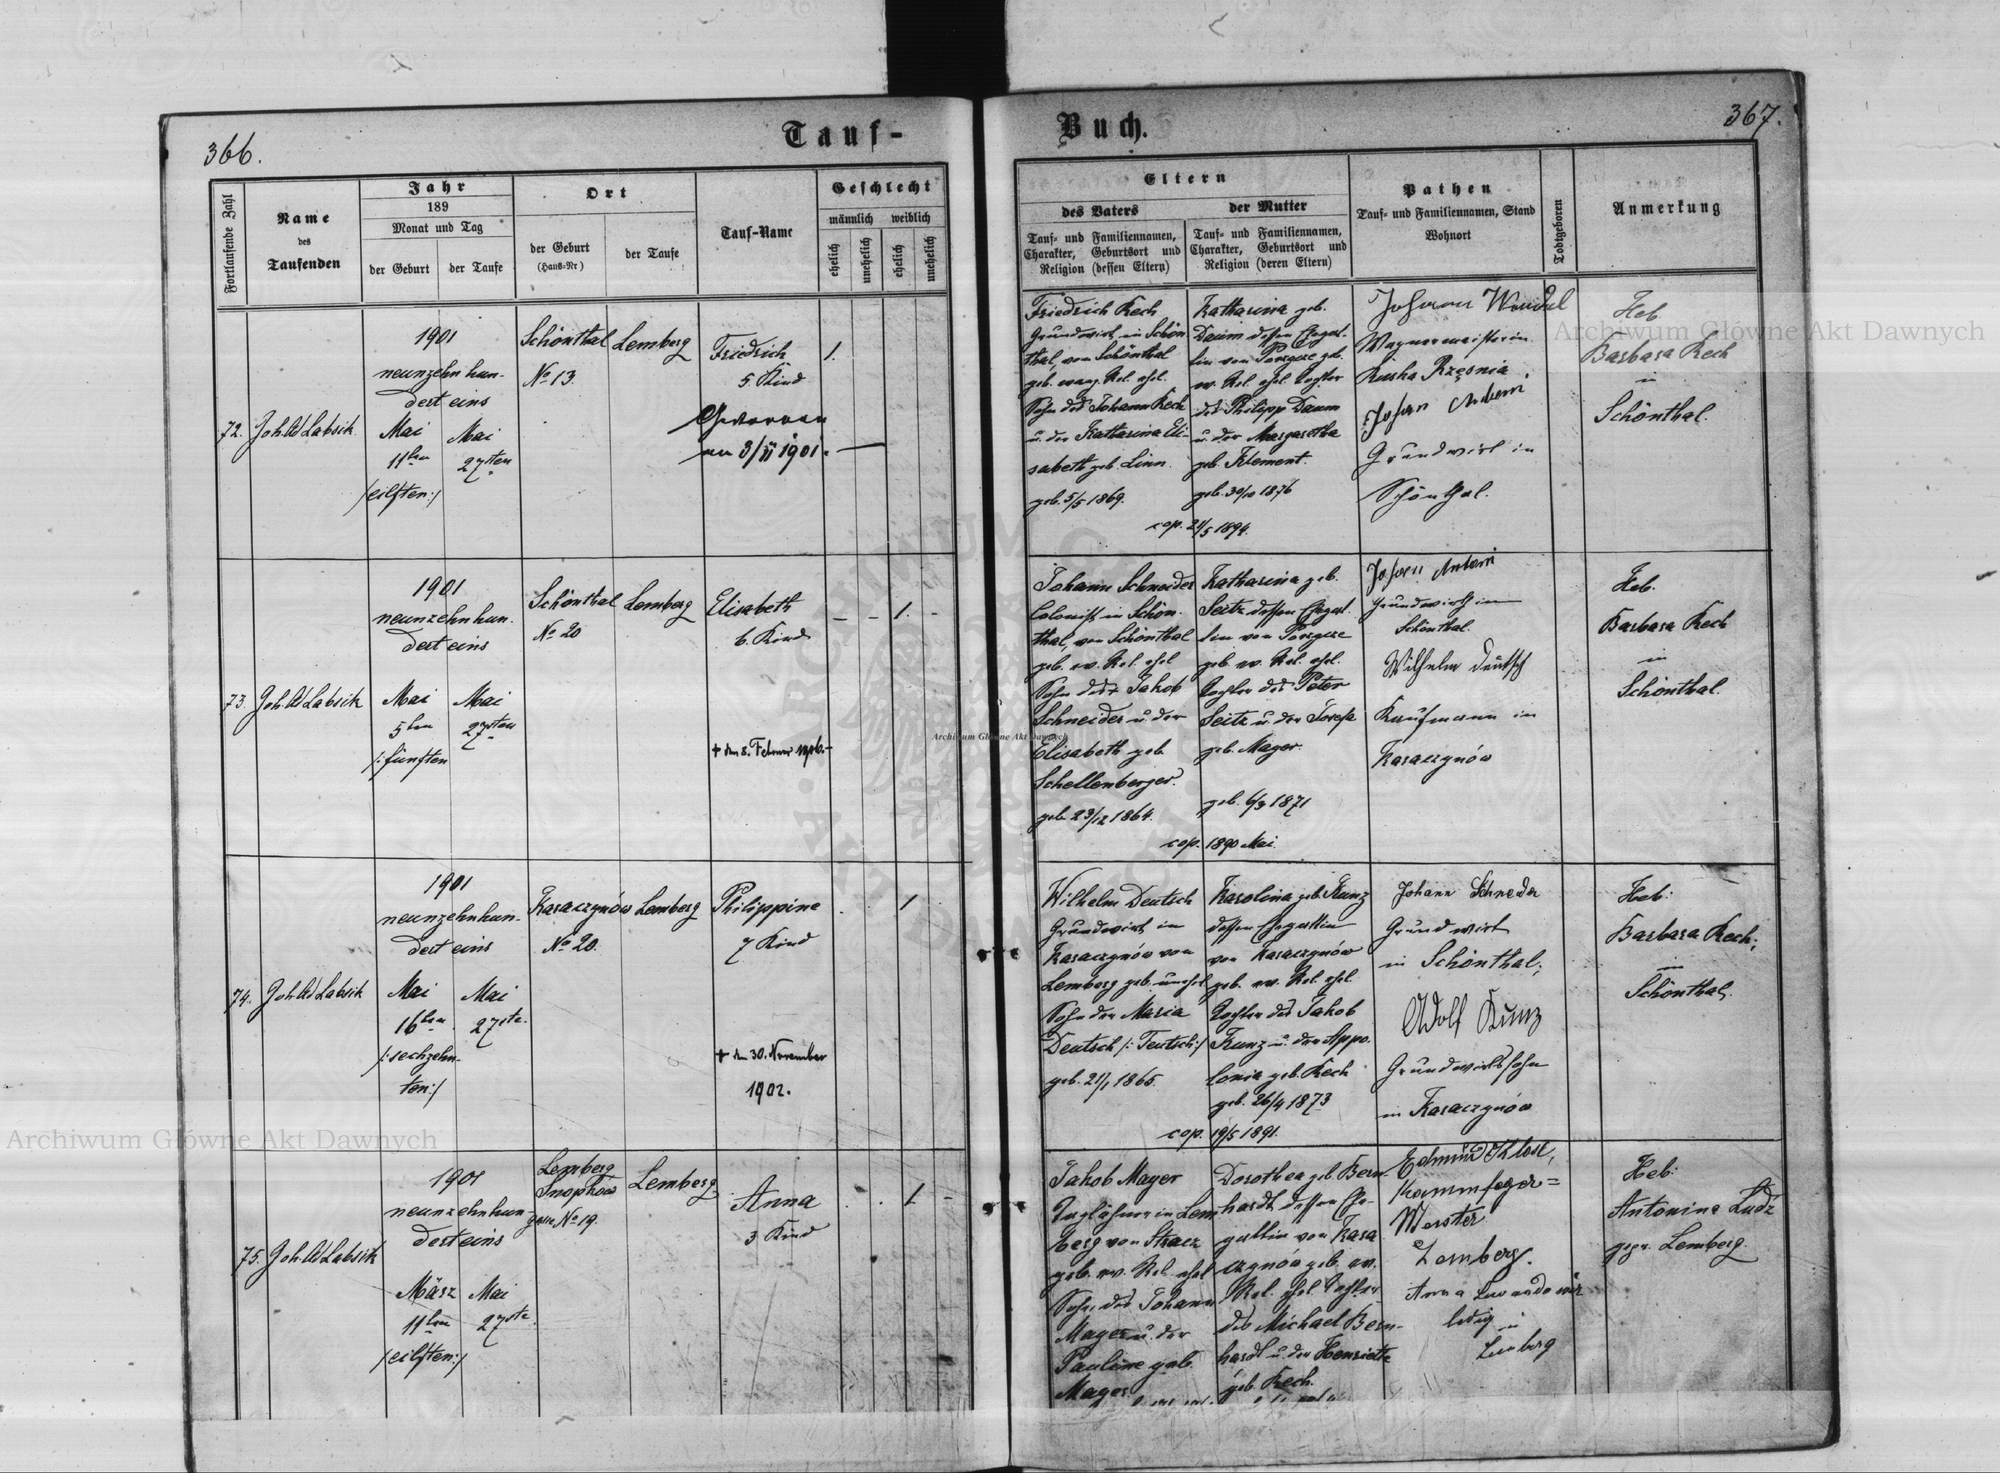 366.
Tauf-
Fortlaufende Zahl
Name
des
Taufenden
Jahr
189
Monat und Tag
der Geburt
der Taufe
Ort
der Geburt
(Haus-Nr)
der Taufe
Tauf-Name
Geschlecht
männlich
weiblich
ehelich
unehelich
ehelich
unehelich
72.
Joh. Ad Labsik.
1901
neunzehnhun-
dert eins
Mai
11ten
/eilften:/
Mai
27sten
Schönthal
No 13.
Lemberg
Friedrich
5. Kind
am 3/VI 1901.
1.
73.
Joh. Ad Labsik
1901
neunzehnhun.
dert eins
Mai
5ten
/:fünften
Mai
27sten
Schönthal
No 20
Lemberg
Elisabeth
6. Kind
† den 8. Februar
1.
74.
Joh Ad Labsik
1901
neunzehnhun-
dert eins
Mai
16ten
/:sechzehn-
ten:/
Mai
27ste.
Karaczynów
No 20.
Lemberg
Philippine
7 Kind
† den 30. November
1902.
1
75.
Joh. Ad Labsik
1901
neunzehnhun-
dert eins
März
11ten
/eilften:/
Mai
27ste.
Lemberg
Snopków
gasse No 19.
Lemberg
Anna
3 Kind
1
367.
Buch.
Eltern
des Vaters
Tauf- und Familiennamen,
Charakter, Geburtsort und
Religion (dessen Eltern)
der Mutter
Tauf- und Familiennamen,
Charakter, Geburtsort und
Religion (deren Eltern)
Pathen
Tauf- und Familiennamen, Stand
Wohnort
Todtgeboren
Anmerkung
Friedrich Rech
Grundwirt in Schön
thal, von Schönthal
geb. evang. Rel. ehel.
Sohn des Johann Rech
u. der Katharina Eli-
sabeth geb. Linn.
geb. 5/5 1869.
Katharina geb.
Daum dessen Ehegat-
tin von geb.
ev. Rel. ehel. Tochter
des Philipp Daum
u. der Margaretha
geb. Klement.
geb. 30/10 1876
cop. 21/5 1894.
Johann Wendel
Wagnermeister in
Ruska Rzęsnia
Johann
Grundwirt in
Schönthal.
Heb
Barbara Rech
in
Schönthal.
Johann Schneider
Colonist in Schön-
thal, von Schönthal
geb. ev. Rel. ehel
Sohn des Jakob
Schneider u. der
Elisabeth geb.
Schellenberger.
geb 23/12 1864.
Katharina geb.
Seitz dessen Ehegat-
tin von
geb. ev. Rel. ehel.
Tochter des Peter
Seitz u. der Josefa
geb. Mayer.
geb. 6/3 1871
cop. 1890 Mai.
Johann
Grundwirt in
Schönthal.
Wilhelm Deutsch
Kaufmann in
Karaczynów
Heb.
Barbara Rech
in
Schönthal.
Wilhelm Deutsch
Grundwirt in
Karaczynów von
Lemberg geb. unehel
Sohn der Maria
Deutsch /:Teutsch:/
geb. 21/1 1865.
Karolina geb. Kunz
dessen Ehegattin
von Karaczynów
geb. ev. Rel. ehel
Tochter des Jakob
Kunz u. der Appo.
lonia geb. Rech
geb. 26/4 1873
cop. 19/5 1891.
Johann Schneider
Grundwirt
in Schönthal;
Adolf Kunz
Grundwirtssohn
in Karaczynów
Heb:
Barbara Rech;
in
Schönthal,
Jakob Mayer
Taglöhner in Lem
berg von
geb. ev. Rel. ehel
Sohn des Johann
Mayer u. der
Pauline geb.
Mayer
Dorothea geb. Bern
hardt dessen Ehe-
gattin von Kara
czynów geb. ev.
Rel. ehel Tochter
des Michael Bern-
hardt u. der Henriette
geb. Rech.
Edmund Klose,
Kammfeger=
Meister
Lemberg.
Anna
ledig in
Lemberg
Heb:
Antonina
gepr. Lemberg.
Archiwum Główne Akt Dawnych
Archiwum Główne Akt Dawnych
Archiwum Główne Akt Dawnych